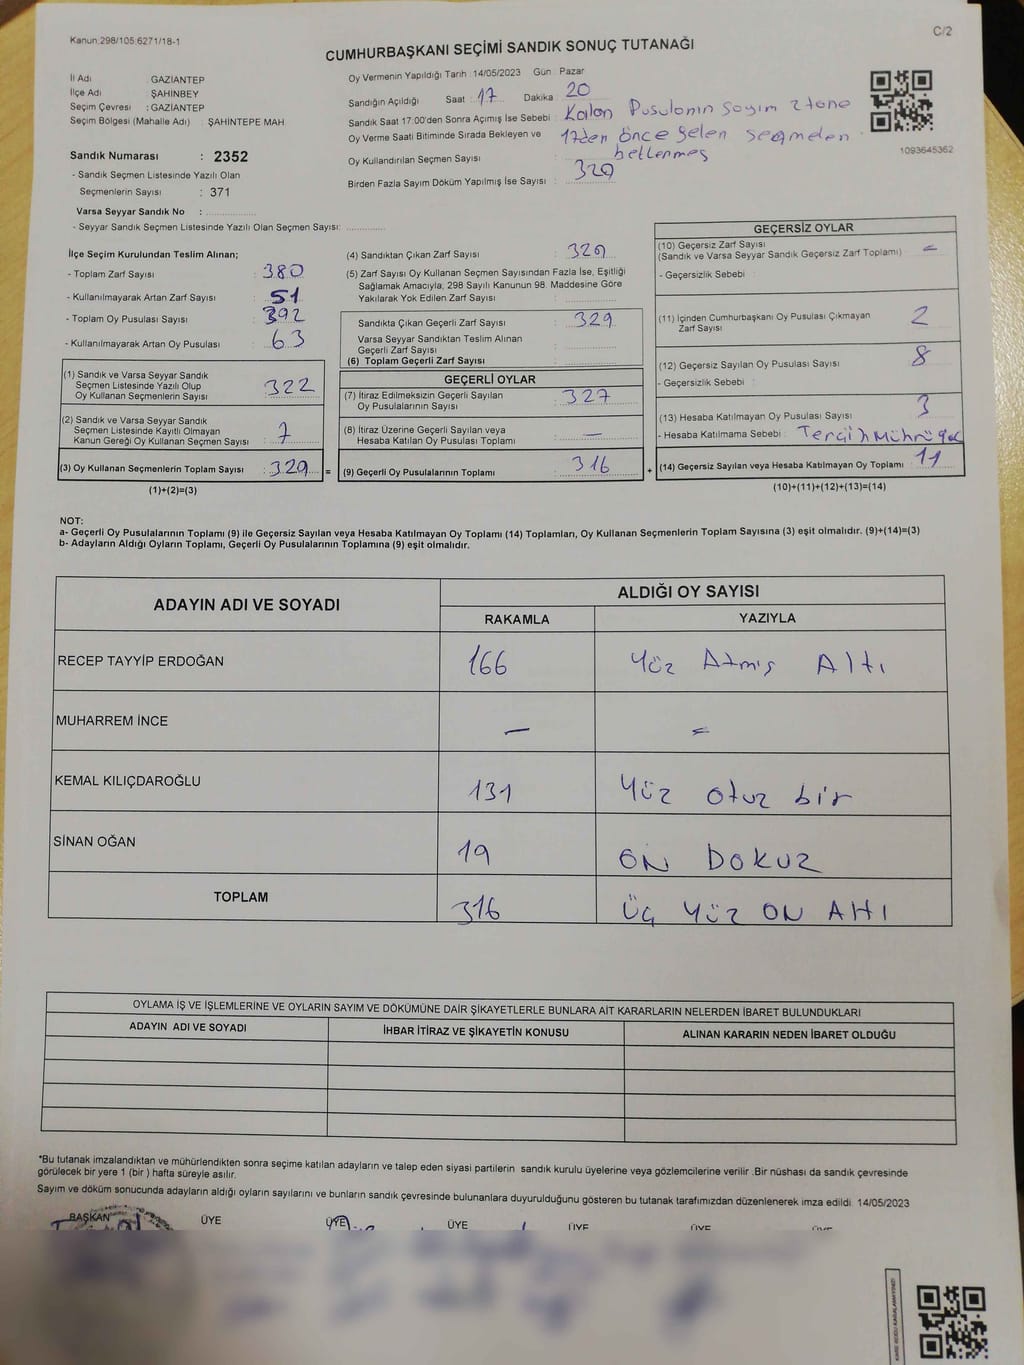 Kanun:298/105:6271/18-1
C/2
CUMHURBAŞKANI SEÇİMİ SANDIK SONUÇ TUTANAĞI
İl Adı GAZİANTEP
İlçe Adı : ŞAHİNBEY
Seçim Çevresi : GAZİANTEP
Seçim Bölgesi (Mahalle Adı) : ŞAHİNTEPE MAH
Oy Vermenin Yapıldığı Tarih : 14/05/2023 Gün : Pazar
Sandığın Açıldığı Saat : 17 Dakika : 20
Sandık Saat 17:00'den Sonra Açımış İse Sebebi : Kalan Pusulanın sayım 2 tane
Oy Verme Saati Bitiminde Sırada Bekleyen ve 17den önce gelen seçmeden
Oy Kullandırılan Seçmen Sayısı :
Birden Fazla Sayım Döküm Yapılmış İse Sayısı : 329
1093645362
Sandık Numarası : 2352
- Sandık Seçmen Listesinde Yazılı Olan
Seçmenlerin Sayısı : 371
Varsa Seyyar Sandık No :
- Seyyar Sandık Seçmen Listesinde Yazılı Olan Seçmen Sayısı:
İlçe Seçim Kurulundan Teslim Alınan;
- Toplam Zarf Sayısı : 380
- Kullanılmayarak Artan Zarf Sayısı : 51
- Toplam Oy Pusulası Sayısı : 392
- Kullanılmayarak Artan Oy Pusulası : 63
(1) Sandık ve Varsa Seyyar Sandık
Seçmen Listesinde Yazılı Olup
Oy Kullanan Seçmenlerin Sayısı : 322
(2) Sandık ve Varsa Seyyar Sandık
Seçmen Listesinde Kayıtlı Olmayan
Kanun Gereği Oy Kullanan Seçmen Sayısı : 7
(3) Oy Kullanan Seçmenlerin Toplam Sayısı : 329 =
(1)+(2)=(3)
(4) Sandıktan Çıkan Zarf Sayısı : 329
(5) Zarf Sayısı Oy Kullanan Seçmen Sayısından Fazla İse, Eşitliği
Sağlamak Amacıyla, 298 Sayılı Kanunun 98. Maddesine Göre
Yakılarak Yok Edilen Zarf Sayısı :
Sandıkta Çıkan Geçerli Zarf Sayısı : 329
Varsa Seyyar Sandıktan Teslim Alınan
Geçerli Zarf Sayısı :
(6) Toplam Geçerli Zarf Sayısı :
GEÇERLİ OYLAR
(7) İtiraz Edilmeksizin Geçerli Sayılan
Oy Pusulalarının Sayısı : 327
(8) İtiraz Üzerine Geçerli Sayılan veya
Hesaba Katılan Oy Pusulası Toplamı : —
(9) Geçerli Oy Pusulalarının Toplamı : 316 +
GEÇERSİZ OYLAR
(10) Geçersiz Zarf Sayısı
(Sandık ve Varsa Seyyar Sandık Geçersiz Zarf Toplamı) : =
- Geçersizlik Sebebi :
(11) İçinden Cumhurbaşkanı Oy Pusulası Çıkmayan
Zarf Sayısı 2
(12) Geçersiz Sayılan Oy Pusulası Sayısı : 8
- Geçersizlik Sebebi :
(13) Hesaba Katılmayan Oy Pusulası Sayısı : 3
- Hesaba Katılmama Sebebi : Tercih Mührü yok
(14) Geçersiz Sayılan veya Hesaba Katılmayan Oy Toplamı : 11
(10)+(11)+(12)+(13)=(14)
NOT:
a- Geçerli Oy Pusulalarının Toplamı (9) ile Geçersiz Sayılan veya Hesaba Katılmayan Oy Toplamı (14) Toplamları, Oy Kullanan Seçmenlerin Toplam Sayısına (3) eşit olmalıdır. (9)+(14)=(3)
b- Adayların Aldığı Oyların Toplamı, Geçerli Oy Pusulalarının Toplamına (9) eşit olmalıdır.
ADAYIN ADI VE SOYADI
ALDIĞI OY SAYISI
RAKAMLA YAZIYLA
RECEP TAYYİP ERDOĞAN 166 Yüz Atmış Altı
MUHARREM İNCE — =
KEMAL KILIÇDAROĞLU 131 Yüz otuz bir
SİNAN OĞAN 19 ON DOKUZ
TOPLAM 316 üç yüz ON Altı
OYLAMA İŞ VE İŞLEMLERİNE VE OYLARIN SAYIM VE DÖKÜMÜNE DAİR ŞİKAYETLERLE BUNLARA AİT KARARLARIN NELERDEN İBARET BULUNDUKLARI
ADAYIN ADI VE SOYADI İHBAR İTİRAZ VE ŞİKAYETİN KONUSU ALINAN KARARIN NEDEN İBARET OLDUĞU
*Bu tutanak imzalandıktan ve mühürlendikten sonra seçime katılan adayların ve talep eden siyasi partilerin sandık kurulu üyelerine veya gözlemcilerine verilir .Bir nüshası da sandık çevresinde
görülecek bir yere 1 (bir ) hafta süreyle asılır.
Sayım ve döküm sonucunda adayların aldığı oyların sayılarını ve bunların sandık çevresinde bulunanlara duyurulduğunu gösteren bu tutanak tarafımızdan düzenlenerek imza edildi 14/05/2023
BAŞKAN ÜYE ÜYE ÜYE ÜYE ÜYE ÜYE